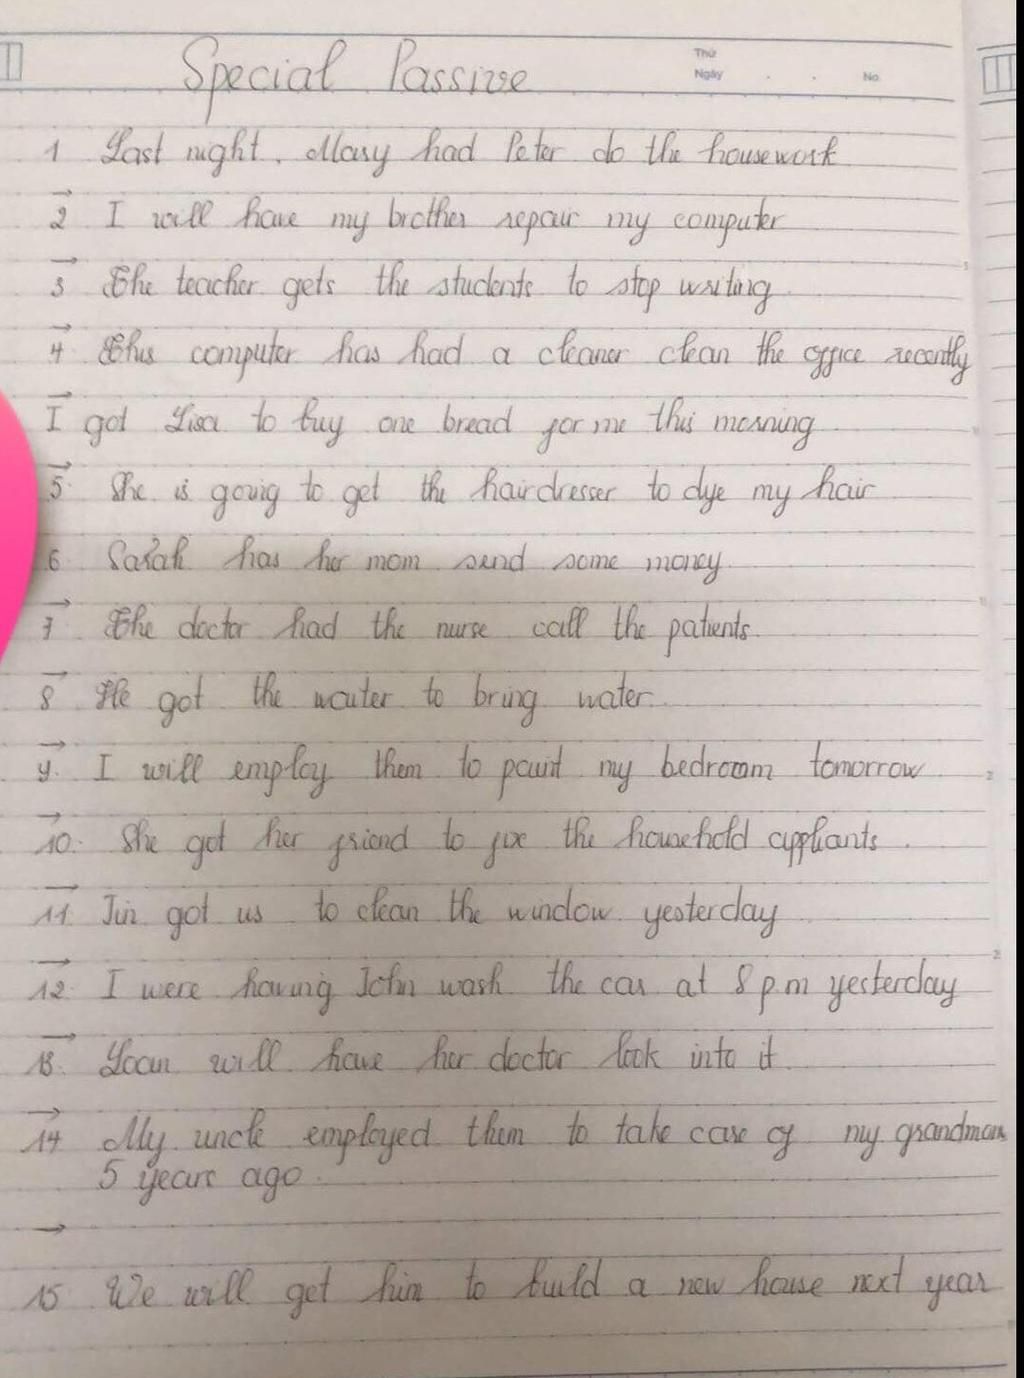 Thứ
Special Passive
Ngày . . No.
1 Last night, Mary had Peter do the housework
→
2 I will have my brother repair my computer
→
3 The teacher gets the students to stop writing
→
4 This computer has had a cleaner clean the office recently
→
I got Lisa to buy one bread for me this morning
→
5. She is going to get the hairdresser to dye my hair
6. Sarah has her mom send some money
→
7 The doctor had the nurse call the patients.
→
8 He got the waiter to bring water.
→
9. I will employ them to paint my bedroom tomorrow
→
10. She got her friend to fix the household appliants.
→
11. Jin got us to clean the window yesterday
→
12. I were having John wash the car at 8 p.m yesterday
→
13. Loan will have her doctor look into it
→
14 My uncle employed them to take care of my
5 years ago.
→
15 We will get him to build a new house next year